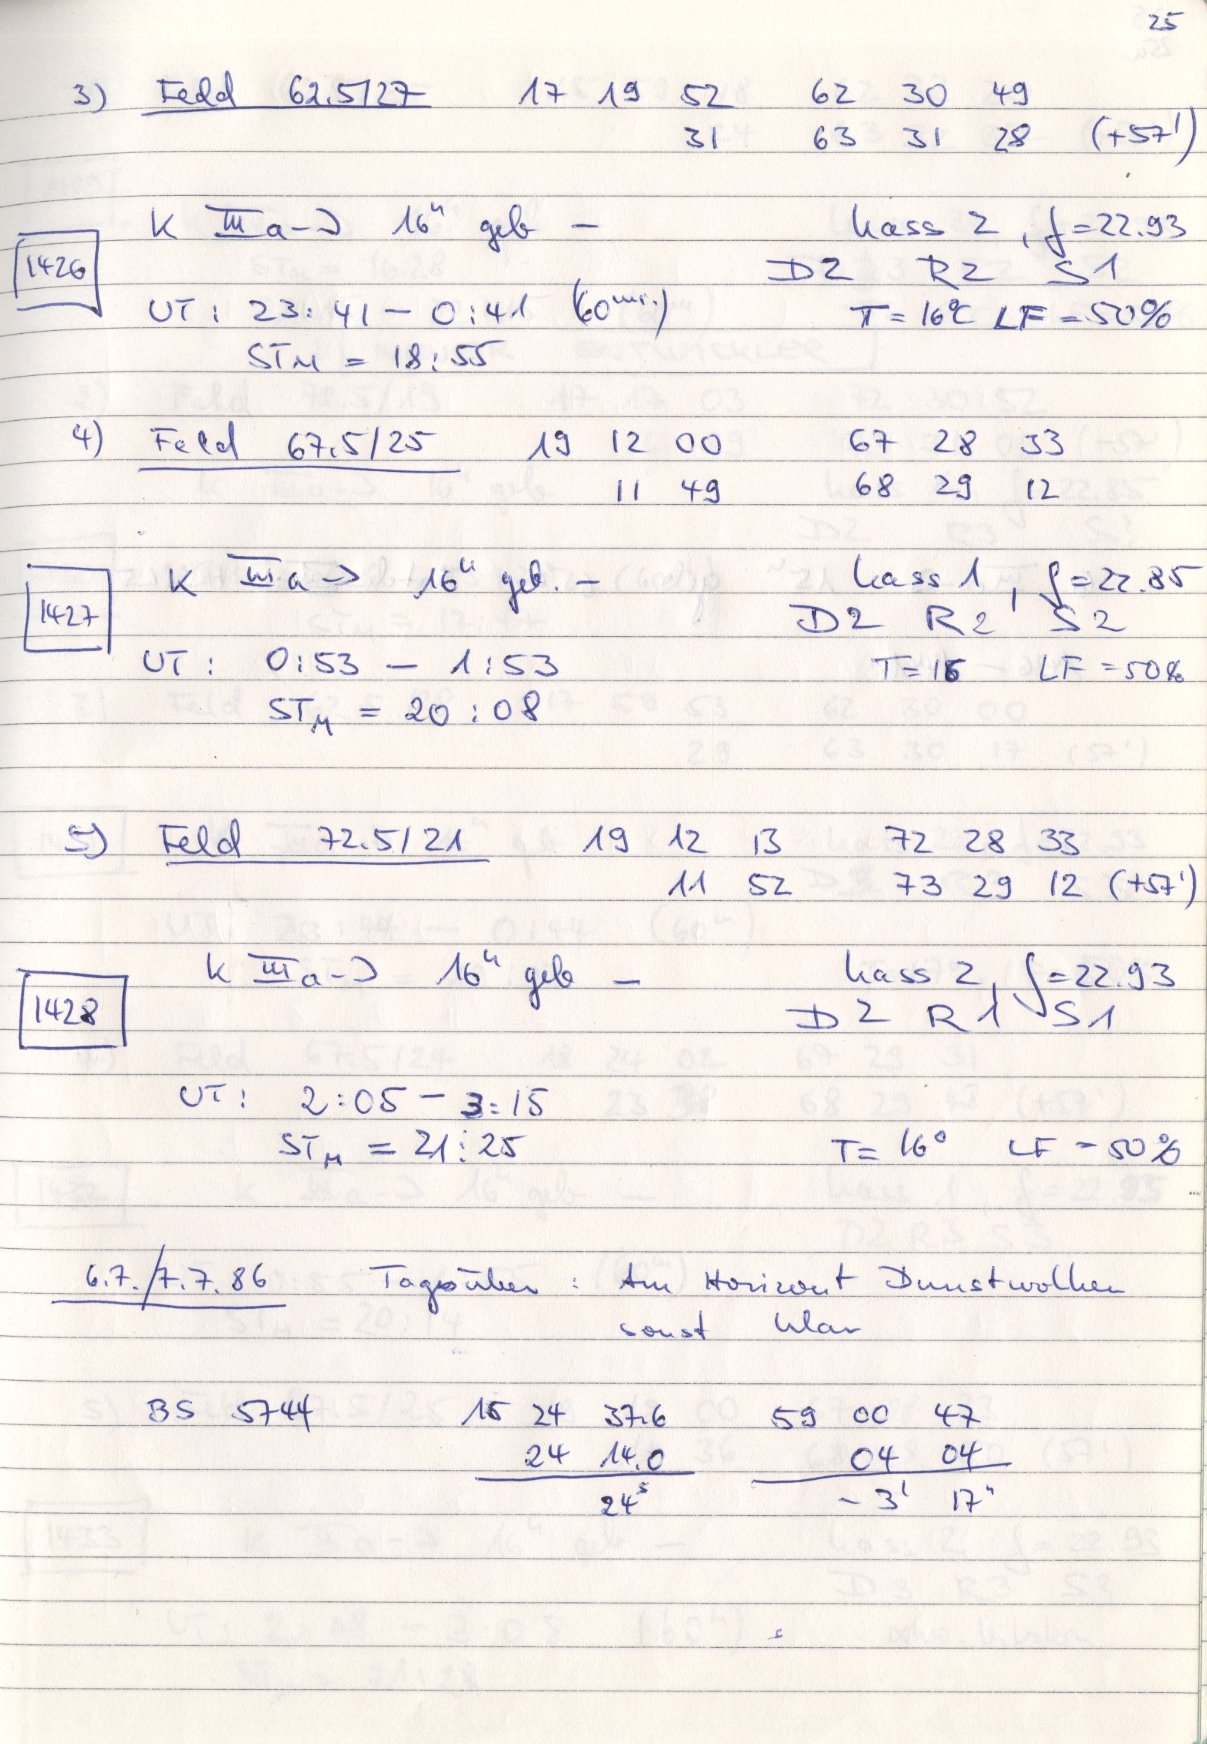 25
3) Feld 62.5/27 17 19 52 62 30 49
31 63 31 28 (+57')
K IIIa-> 16" geb - Kass 2, f=22.93
1426 D2 R2 S1
UT: 23:41 - 0:41 (60min.) T=16°C LF=50%
STM = 18:55
4) Feld 67.5/25 19 12 00 67 28 33
11 49 68 29 12
K IIIa-> 16" geb. - Kass 1, f=22.85
1427 D2 R2 S2
UT: 0:53 - 1:53 T=16 LF=50%
STM = 20:08
5) Feld 72.5/21 19 12 13 72 28 33
11 52 73 29 12 (+57')
K IIIa-> 16" geb - Kass 2, f=22.93
1428 D2 R1 S1
UT: 2:05 - 3:15
STM = 21:25 T=16° LF=50%
6.7./7.7.86 Tagsüber: Am Horizont Dunstwolken
sonst klar
BS 5744 15 24 37.6 59 00 47
24 14.0 04 04
24s -3' 17"